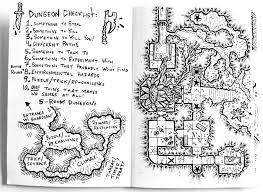 DUNGEON CHECKLIST:
1. SOMETHING TO STEAL
2. SOMETHING TO KILL
3. SOMETHING TO KILL YOU!
4. DIFFERENT PATHS
5. SOMEONE TO TALK TO
6. SOMETHING TO EXPERIMENT WITH
7. SOMETHING THEY PROBABLY WON'T FIND
8. ENVIRONMENTAL HAZARDS
9. PUZZLE/TRICK/RP-CHALLENGE
10. ANY THING THAT MAKES
NO SENSE AT ALL!
5-ROOM DUNGEON:
ENTRANCE
W/ GUARDIAN?
PUZZLE/
RP CHALLENGE
REWARD/
REVELATION
TRICK/
SETBACK
CLIMAX